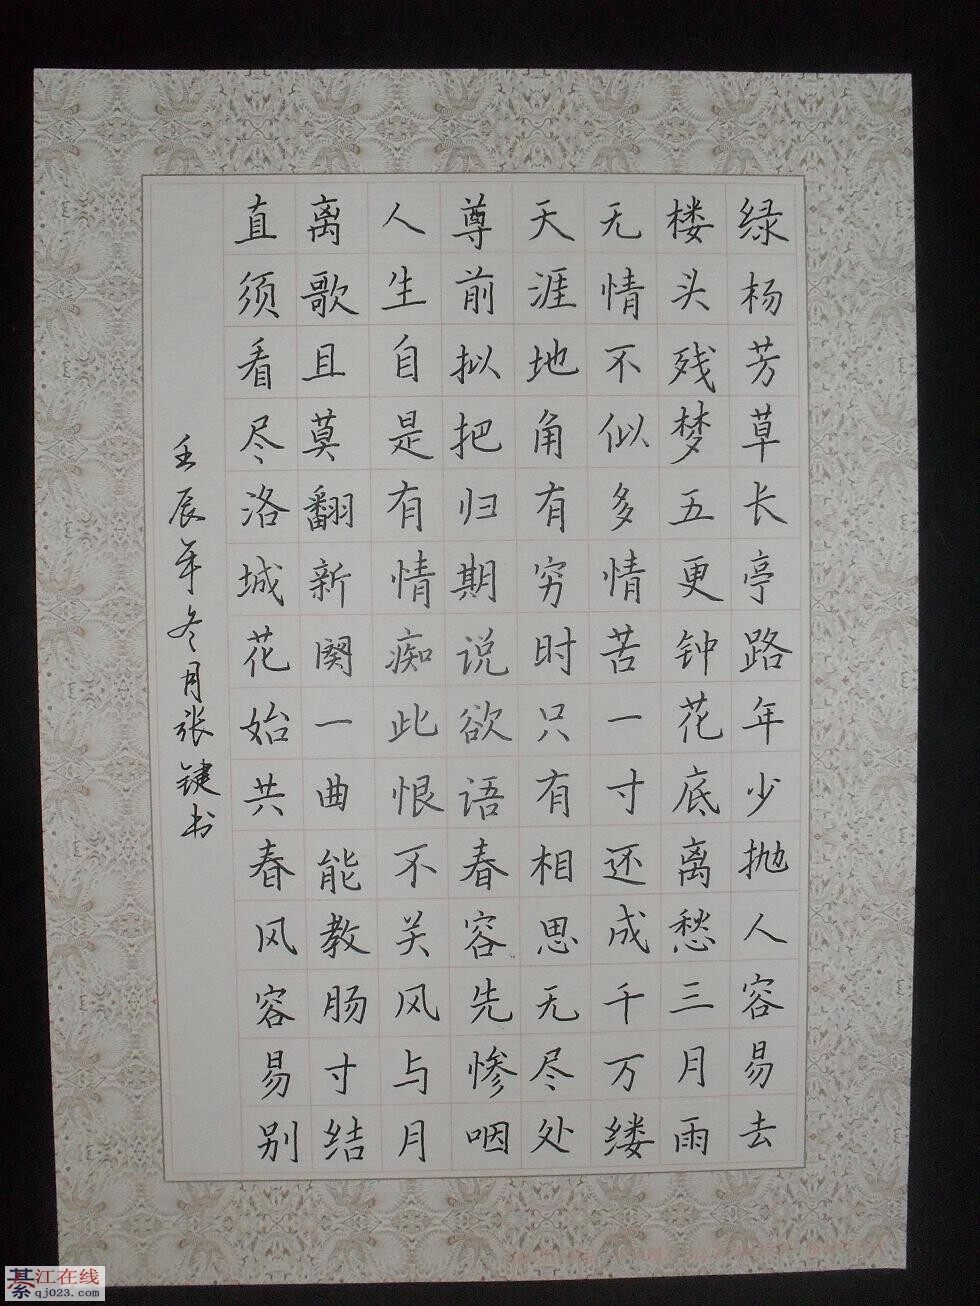 绿杨芳草长亭路年少抛人容易去
楼头残梦五更钟花底离愁三月雨
无情不似多情苦一寸还成千万缕
天涯地角有穷时只有相思无尽处
尊前拟把归期说欲语春容先惨咽
人生自是有情痴此恨不关风与月
离歌且莫翻新阕一曲能教肠寸结
直须看尽洛城花始共春风容易别
壬辰年冬月张键书
綦江在线
qj023.com